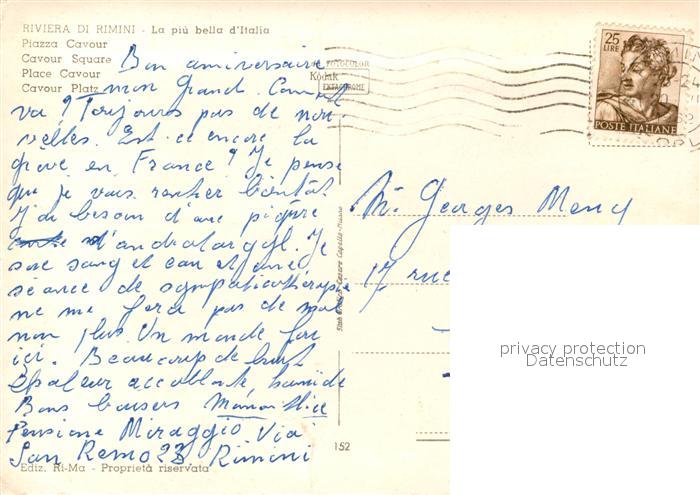 RIVIERA DI RIMINI - La più bella d'Italia
Piazza Cavour
Cavour Square
Place Cavour
Cavour Platz
FOTOCOLOR
Kodak
EKTACHROME
25
LIRE
POSTE ITALIANE
Bon anniversaire
mon Grand. Comment
va ? Toujours pas de nou-
velles. Est-ce encore la
grève en France ? Je pense
que je vais rentrer bientôt
J'ai besoin d'une piqûre
Je
suis sang et eau et une
séance de sympathicothérapie
ne me fera pas de mal
non plus. Un monde fou
ici. Beaucoup de bruit
Chaleur accablante, humide
Bons baisers
Pensione Miraggio Via
San Remo 23 Rimini
Mr Georges
17 rue
privacy protection
Datenschutz
152
Ediz. Ri-Ma - Proprietà riservata